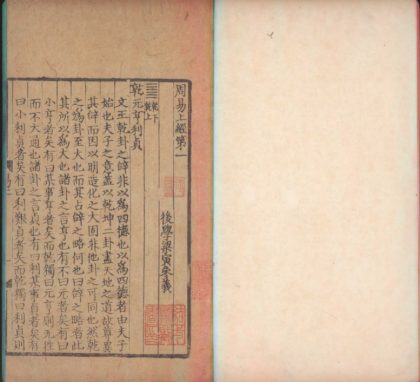 周易上經第一
後學梁寅參義
乾下
乾上
乾元亨利貞
文王乾卦之辭非以爲四德也以爲四德者由夫子
始也夫子之意蓋以乾坤二卦盡天地之道故章要
其辭而因以明造化之大固非他卦之可同也然乾
之爲卦至大也而其占辭之略何也曰辭之略者此
其所以爲大也諸卦之言亨也有不曰元者矣有曰
小亨者矣有曰某事亨者矣而乾獨曰元亨則无往
而不大通也諸卦之言貞也有曰利某事貞者矣有
曰小利貞者矣有曰利艱貞者矣而乾獨曰利貞則